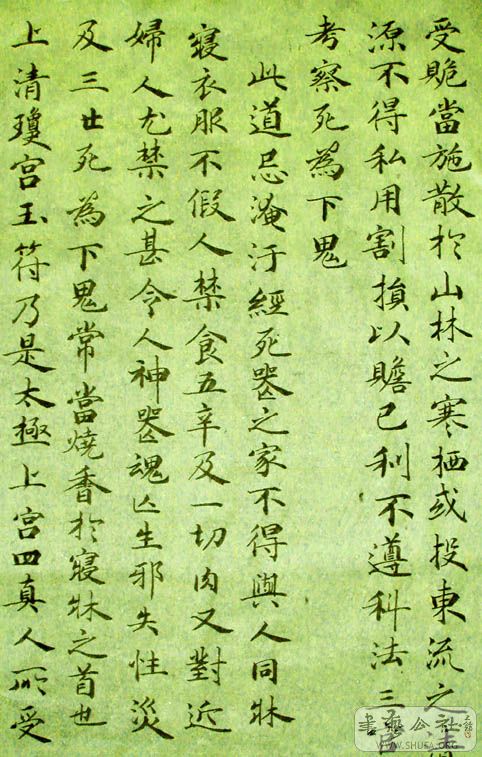 受貺當施散於山林之寒栖或投東流之清
源不得私用割損以贍己利不遵科法三官
考察死為下鬼
此道忌淹汙經死喪之家不得與人同牀
寢衣服不假人禁食五辛及一切肉又對近
婦人尤禁之甚令人神喪魂亡生邪失性災
及三世死為下鬼常當燒香於寢牀之首也
上清瓊宮玉符乃是太極上宮四真人所受
書藝公社
WWW.SHUFA.ORG